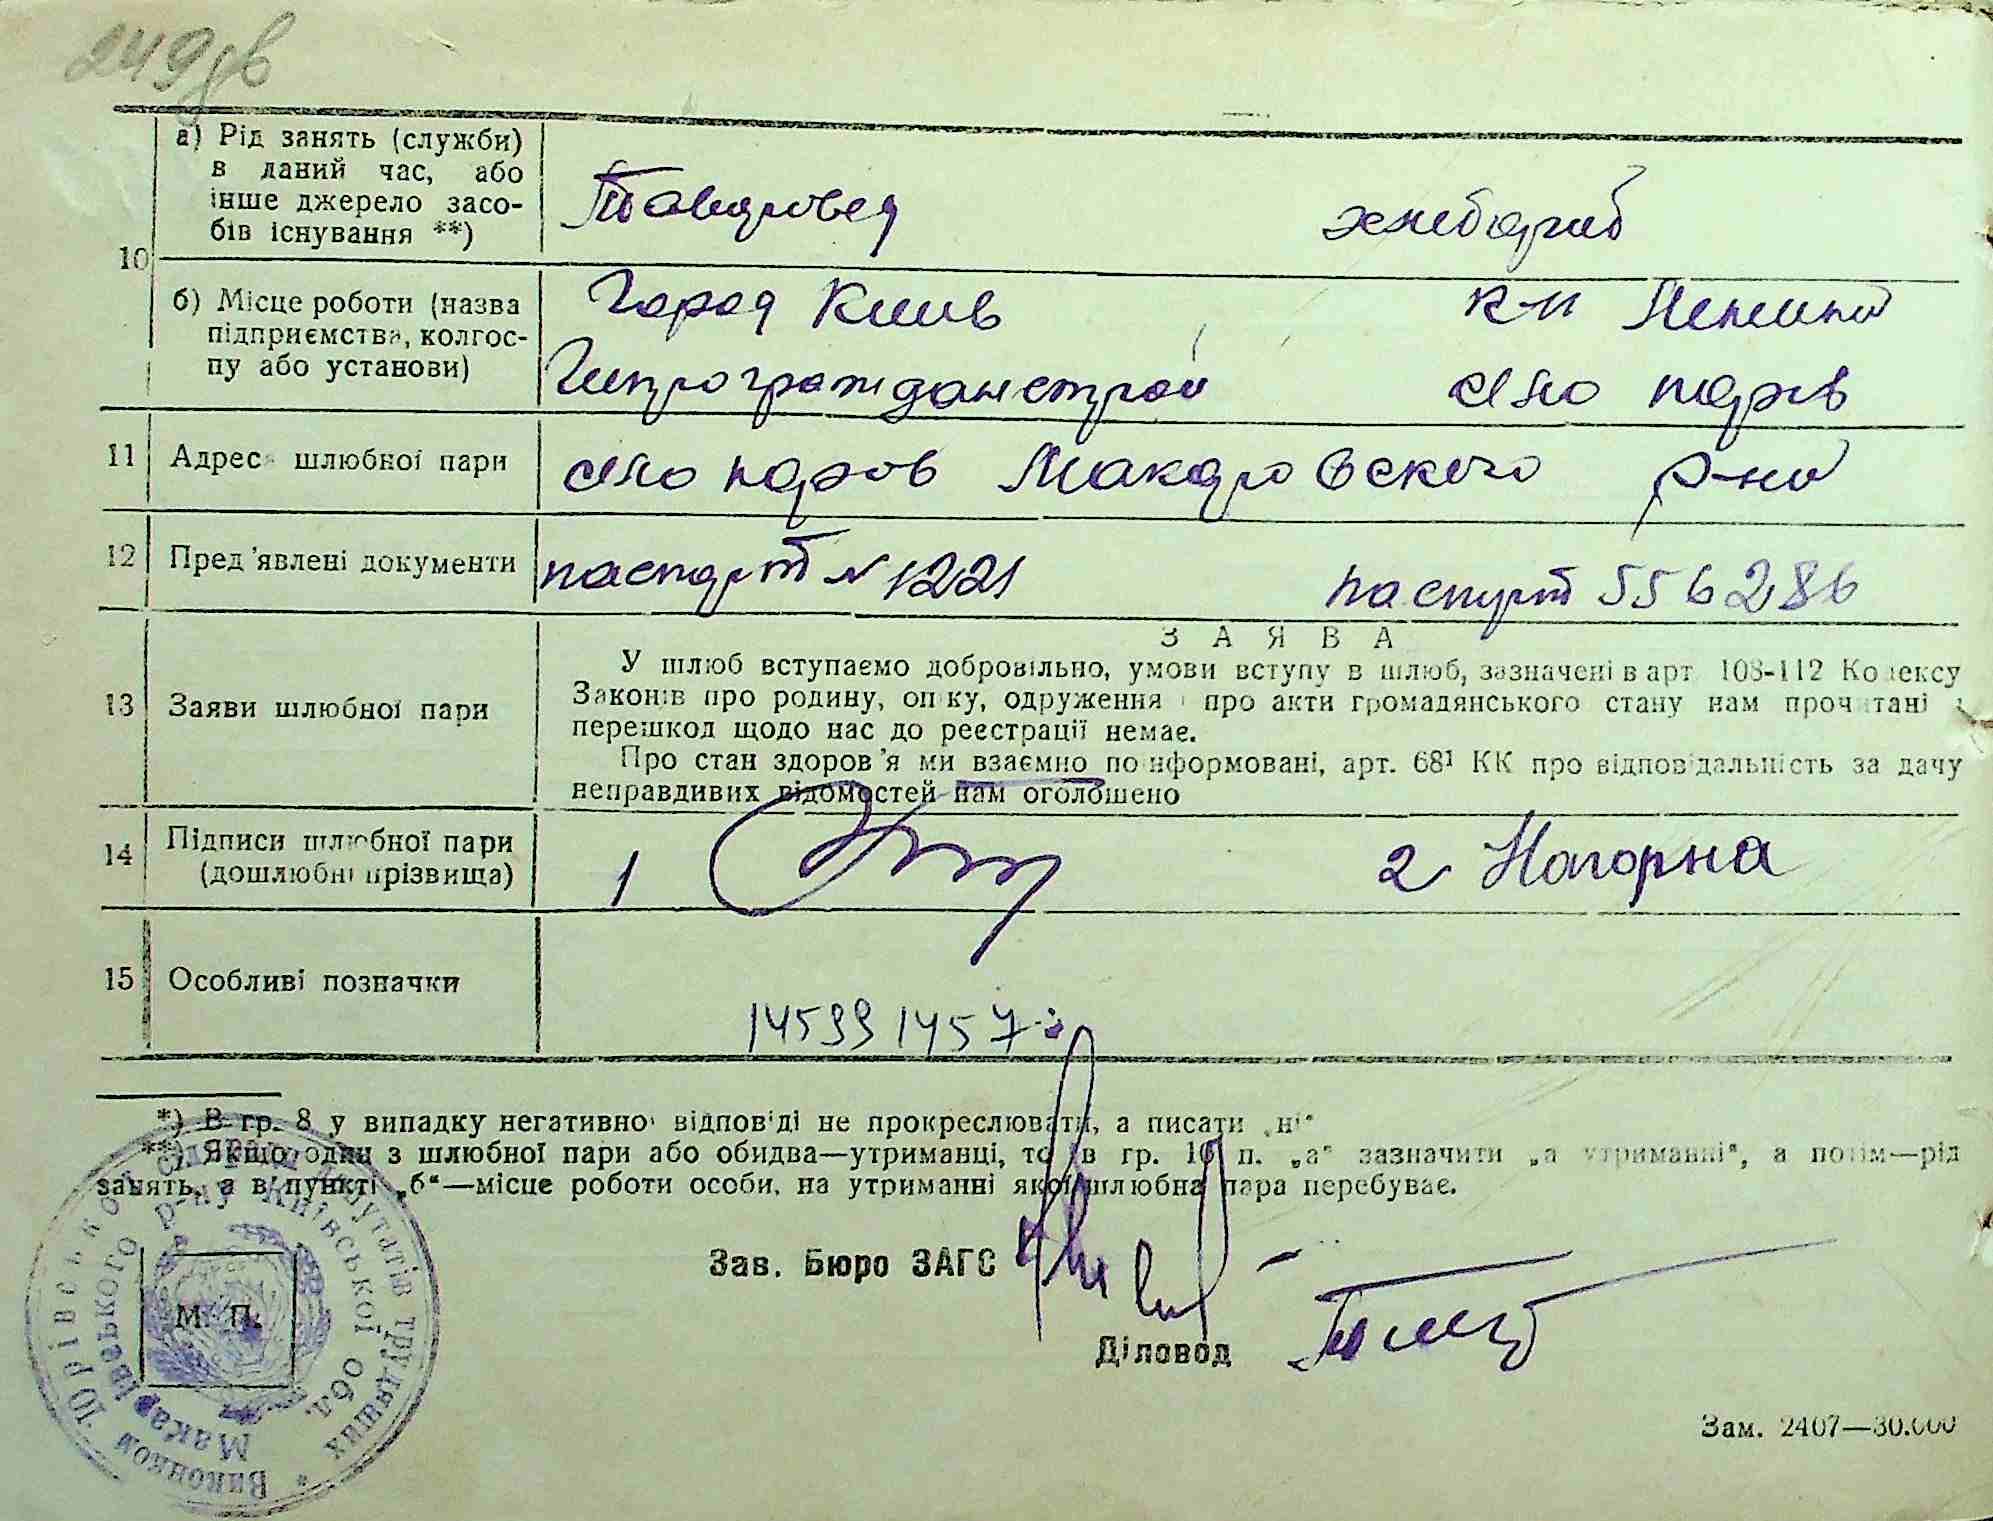 249 зв
10
а) Рід занять (служби)
в даний час, або
інше джерело засо-
бів існування **)
Товаровед
хлебороб
б) Місце роботи (назва
підприємства, колгос-
пу або установи)
Город Киив
Гипрогражданстрой
к-п Ленина
село Юров
11 Адреса шлюбної пари
село Юров Макаровского р-на
12 Пред'явлені документи
паспорт № 1221
паспорт 556286
13 Заяви шлюбної пари
ЗАЯВА
У шлюб вступаємо добровільно, умови вступу в шлюб, зазначені в арт 108-112 Кодексу
Законів про родину, опіку, одруження і про акти громадянського стану нам прочитані і
перешкод щодо нас до реєстрації немає.
Про стан здоров'я ми взаємно поінформовані, арт. 68¹ КК про відповідальність за дачу
неправдивих відомостей нам оголошено
14 Підписи шлюбної пари
(дошлюбні прізвища)
1
2 Нагорна
15 Особливі позначки
14599 1457
*) В гр. 8 у випадку негативної відповіді не прокреслювати, а писати „ні"
**) Якщо один з шлюбної пари або обидва—утриманці, то в гр. 10 п. „а" зазначити „а утриманні", а потім—рід
занять, а в пункті „б"—місце роботи особи, на утриманні якої шлюбна пара перебуває.
Зав. Бюро ЗАГС
Діловод
М. П.
Виконком Юрівської сільради депутатів трудящих
Макарівського р-ну Київської обл.
Зам. 2407—30.000